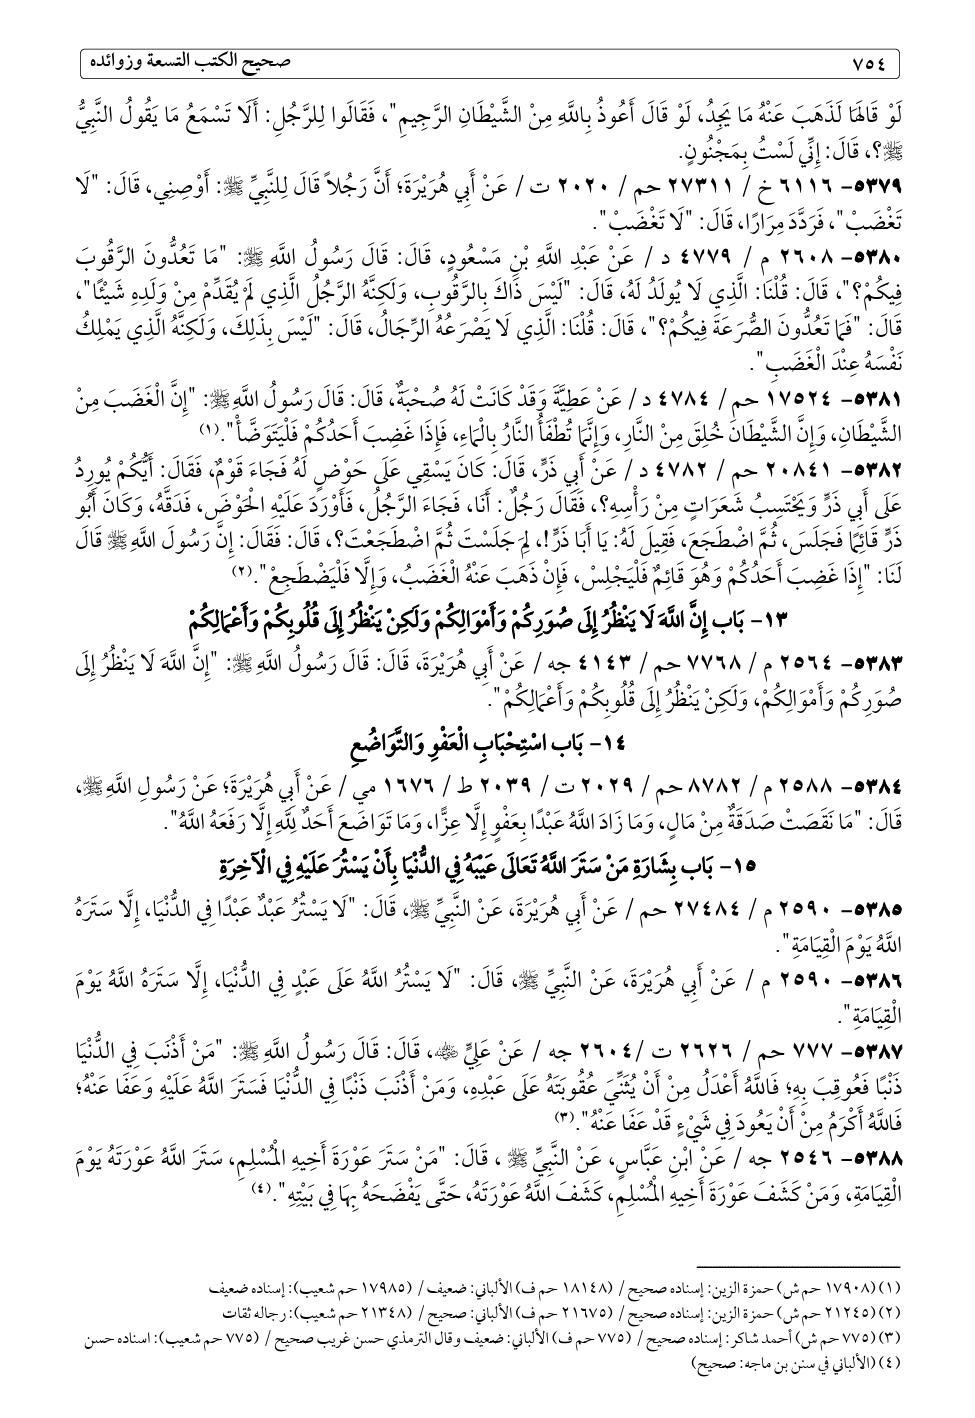 ٧٥٤
صحيح الكتب التسعة وزوائده
لَوْ قَالَهَا لَذَهَبَ عَنْهُ مَا يَجِدُ، لَوْ قَالَ أَعُوذُ بِاللَّهِ مِنْ الشَّيْطَانِ الرَّجِيمِ"، فَقَالُوا لِلرَّجُلِ: أَلَا تَسْمَعُ مَا يَقُولُ النَّبِيُّ
ﷺ؟، قَالَ: إِنِّي لَسْتُ بِمَجْنُونٍ.
٥٣٧٩- ٦١١٦ خ / ٢٧٣١١ حم / ٢٠٢٠ ت / عَنْ أَبِي هُرَيْرَةَ؛ أَنَّ رَجُلاً قَالَ لِلنَّبِيِّ ﷺ: أَوْصِنِي، قَالَ: "لَا
تَغْضَبْ"، فَرَدَّدَ مِرَارًا، قَالَ: "لَا تَغْضَبْ".
٥٣٨٠- ٢٦٠٨ م / ٤٧٧٩ د / عَنْ عَبْدِ اللَّهِ بْنِ مَسْعُودٍ، قَالَ: قَالَ رَسُولُ اللَّهِ ﷺ: "مَا تَعُدُّونَ الرَّقُوبَ
فِيكُمْ؟"، قَالَ: قُلْنَا: الَّذِي لَا يُولَدُ لَهُ، قَالَ: "لَيْسَ ذَاكَ بِالرَّقُوبِ، وَلَكِنَّهُ الرَّجُلُ الَّذِي لَمْ يُقَدِّمْ مِنْ وَلَدِهِ شَيْئًا"،
قَالَ: "فَمَا تَعُدُّونَ الصُّرَعَةَ فِيكُمْ؟"، قَالَ: قُلْنَا: الَّذِي لَا يَصْرَعُهُ الرِّجَالُ، قَالَ: "لَيْسَ بِذَلِكَ، وَلَكِنَّهُ الَّذِي يَمْلِكُ
نَفْسَهُ عِنْدَ الْغَضَبِ".
٥٣٨١- ١٧٥٢٤ حم / ٤٧٨٤ د / عَنْ عَطِيَّةَ وَقَدْ كَانَتْ لَهُ صُحْبَةٌ، قَالَ: قَالَ رَسُولُ اللَّهِ ﷺ: "إِنَّ الْغَضَبَ مِنْ
الشَّيْطَانِ، وَإِنَّ الشَّيْطَانَ خُلِقَ مِنْ النَّارِ، وَإِنَّمَا تُطْفَأُ النَّارُ بِالْمَاءِ، فَإِذَا غَضِبَ أَحَدُكُمْ فَلْيَتَوَضَّأْ".(١)
٥٣٨٢- ٢٠٨٤١ حم / ٤٧٨٢ د / عَنْ أَبِي ذَرٍّ، قَالَ: كَانَ يَسْقِي عَلَى حَوْضٍ لَهُ فَجَاءَ قَوْمٌ، فَقَالَ: أَيُّكُمْ يُورِدُ
عَلَى أَبِي ذَرٍّ وَيَحْتَسِبُ شَعَرَاتٍ مِنْ رَأْسِهِ؟، فَقَالَ رَجُلٌ: أَنَا، فَجَاءَ الرَّجُلُ، فَأَوْرَدَ عَلَيْهِ الْحَوْضَ، فَدَقَّهُ، وَكَانَ أَبُو
ذَرٍّ قَائِمًا فَجَلَسَ، ثُمَّ اضْطَجَعَ، فَقِيلَ لَهُ: يَا أَبَا ذَرٍّ!، لِمَ جَلَسْتَ ثُمَّ اضْطَجَعْتَ؟، قَالَ: فَقَالَ: إِنَّ رَسُولَ اللَّهِ ﷺ قَالَ
لَنَا: "إِذَا غَضِبَ أَحَدُكُمْ وَهُوَ قَائِمٌ فَلْيَجْلِسْ، فَإِنْ ذَهَبَ عَنْهُ الْغَضَبُ، وَإِلَّا فَلْيَضْطَجِعْ".(٢)
١٣- بَاب إِنَّ اللَّهَ لَا يَنْظُرُ إِلَى صُوَرِكُمْ وَأَمْوَالِكُمْ وَلَكِنْ يَنْظُرُ إِلَى قُلُوبِكُمْ وَأَعْمَالِكُمْ
٥٣٨٣- ٢٥٦٤ م / ٧٧٦٨ حم / ٤١٤٣ جه / عَنْ أَبِي هُرَيْرَةَ، قَالَ: قَالَ رَسُولُ اللَّهِ ﷺ: "إِنَّ اللَّهَ لَا يَنْظُرُ إِلَى
صُوَرِكُمْ وَأَمْوَالِكُمْ، وَلَكِنْ يَنْظُرُ إِلَى قُلُوبِكُمْ وَأَعْمَالِكُمْ".
١٤- بَاب اسْتِحْبَابِ الْعَفْوِ وَالتَّوَاضُعِ
٥٣٨٤- ٢٥٨٨ م / ٨٧٨٢ حم / ٢٠٢٩ ت / ٢٠٣٩ ط / ١٦٧٦ مي / عَنْ أَبِي هُرَيْرَةَ؛ عَنْ رَسُولِ اللَّهِ ﷺ،
قَالَ: "مَا نَقَصَتْ صَدَقَةٌ مِنْ مَالٍ، وَمَا زَادَ اللَّهُ عَبْدًا بِعَفْوٍ إِلَّا عِزًّا، وَمَا تَوَاضَعَ أَحَدٌ لِلَّهِ إِلَّا رَفَعَهُ اللَّهُ".
١٥- بَاب بِشَارَةِ مَنْ سَتَرَ اللَّهُ تَعَالَى عَيْبَهُ فِي الدُّنْيَا بِأَنْ يَسْتُرَ عَلَيْهِ فِي الْآخِرَةِ
٥٣٨٥- ٢٥٩٠ م / ٢٧٤٨٤ حم / عَنْ أَبِي هُرَيْرَةَ، عَنْ النَّبِيِّ ﷺ، قَالَ: "لَا يَسْتُرُ عَبْدٌ عَبْدًا فِي الدُّنْيَا، إِلَّا سَتَرَهُ
اللَّهُ يَوْمَ الْقِيَامَةِ".
٥٣٨٦- ٢٥٩٠ م / عَنْ أَبِي هُرَيْرَةَ، عَنْ النَّبِيِّ ﷺ، قَالَ: "لَا يَسْتُرُ اللَّهُ عَلَى عَبْدٍ فِي الدُّنْيَا، إِلَّا سَتَرَهُ اللَّهُ يَوْمَ
الْقِيَامَةِ".
٥٣٨٧- ٧٧٧ حم / ٢٦٢٦ ت /٢٦٠٤ جه / عَنْ عَلِيٍّ ﵁، قَالَ: قَالَ رَسُولُ اللَّهِ ﷺ: "مَنْ أَذْنَبَ فِي الدُّنْيَا
ذَنْبًا فَعُوقِبَ بِهِ؛ فَاللَّهُ أَعْدَلُ مِنْ أَنْ يُثَنِّيَ عُقُوبَتَهُ عَلَى عَبْدِهِ، وَمَنْ أَذْنَبَ ذَنْبًا فِي الدُّنْيَا فَسَتَرَ اللَّهُ عَلَيْهِ وَعَفَا عَنْهُ؛
فَاللَّهُ أَكْرَمُ مِنْ أَنْ يَعُودَ فِي شَيْءٍ قَدْ عَفَا عَنْهُ".(٣)
٥٣٨٨- ٢٥٤٦ جه / عَنْ ابْنِ عَبَّاسٍ، عَنْ النَّبِيِّ ﷺ ، قَالَ: "مَنْ سَتَرَ عَوْرَةَ أَخِيهِ الْمُسْلِمِ، سَتَرَ اللَّهُ عَوْرَتَهُ يَوْمَ
الْقِيَامَةِ، وَمَنْ كَشَفَ عَوْرَةَ أَخِيهِ الْمُسْلِمِ، كَشَفَ اللَّهُ عَوْرَتَهُ، حَتَّى يَفْضَحَهُ بِهَا فِي بَيْتِهِ".(٤)
(١) (١٧٩٠٨ حم ش) حمزة الزين: إسناده صحيح / (١٨١٤٨ حم ف) الألباني: ضعيف / (١٧٩٨٥ حم شعيب): إسناده ضعيف
(٢) (٢١٢٤٥ حم ش) حمزة الزين: إسناده صحيح / (٢١٦٧٥ حم ف) الألباني: صحيح / (٢١٣٤٨ حم شعيب): رجاله ثقات
(٣) (٧٧٥ حم ش) أحمد شاكر: إسناده صحيح / (٧٧٥ حم ف) الألباني: ضعيف وقال الترمذي حسن غريب صحيح / (٧٧٥ حم شعيب): اسناده حسن
(٤) (الألباني في سنن بن ماجه: صحيح)